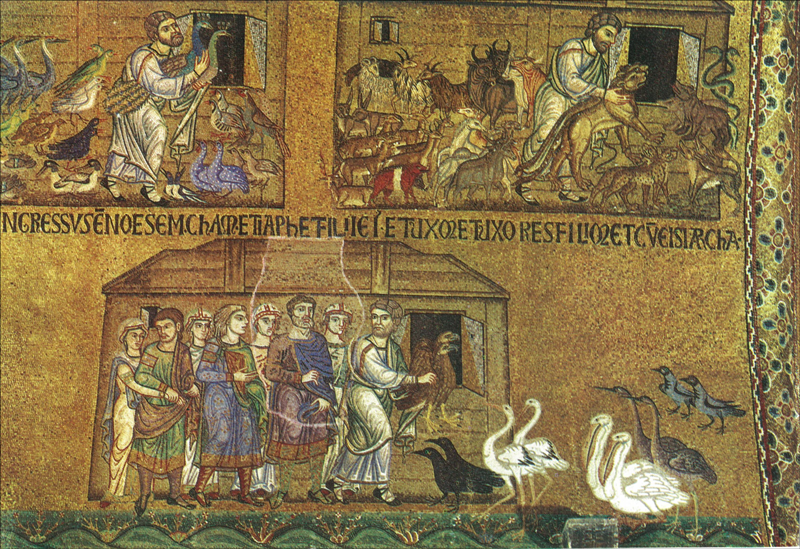 NGRESSVS Ē NOE SEM. CHAM ET IAPHET FILII EI ET UXOR ET UXORES FILIOR ET CV̄ EIS I ARCHA.